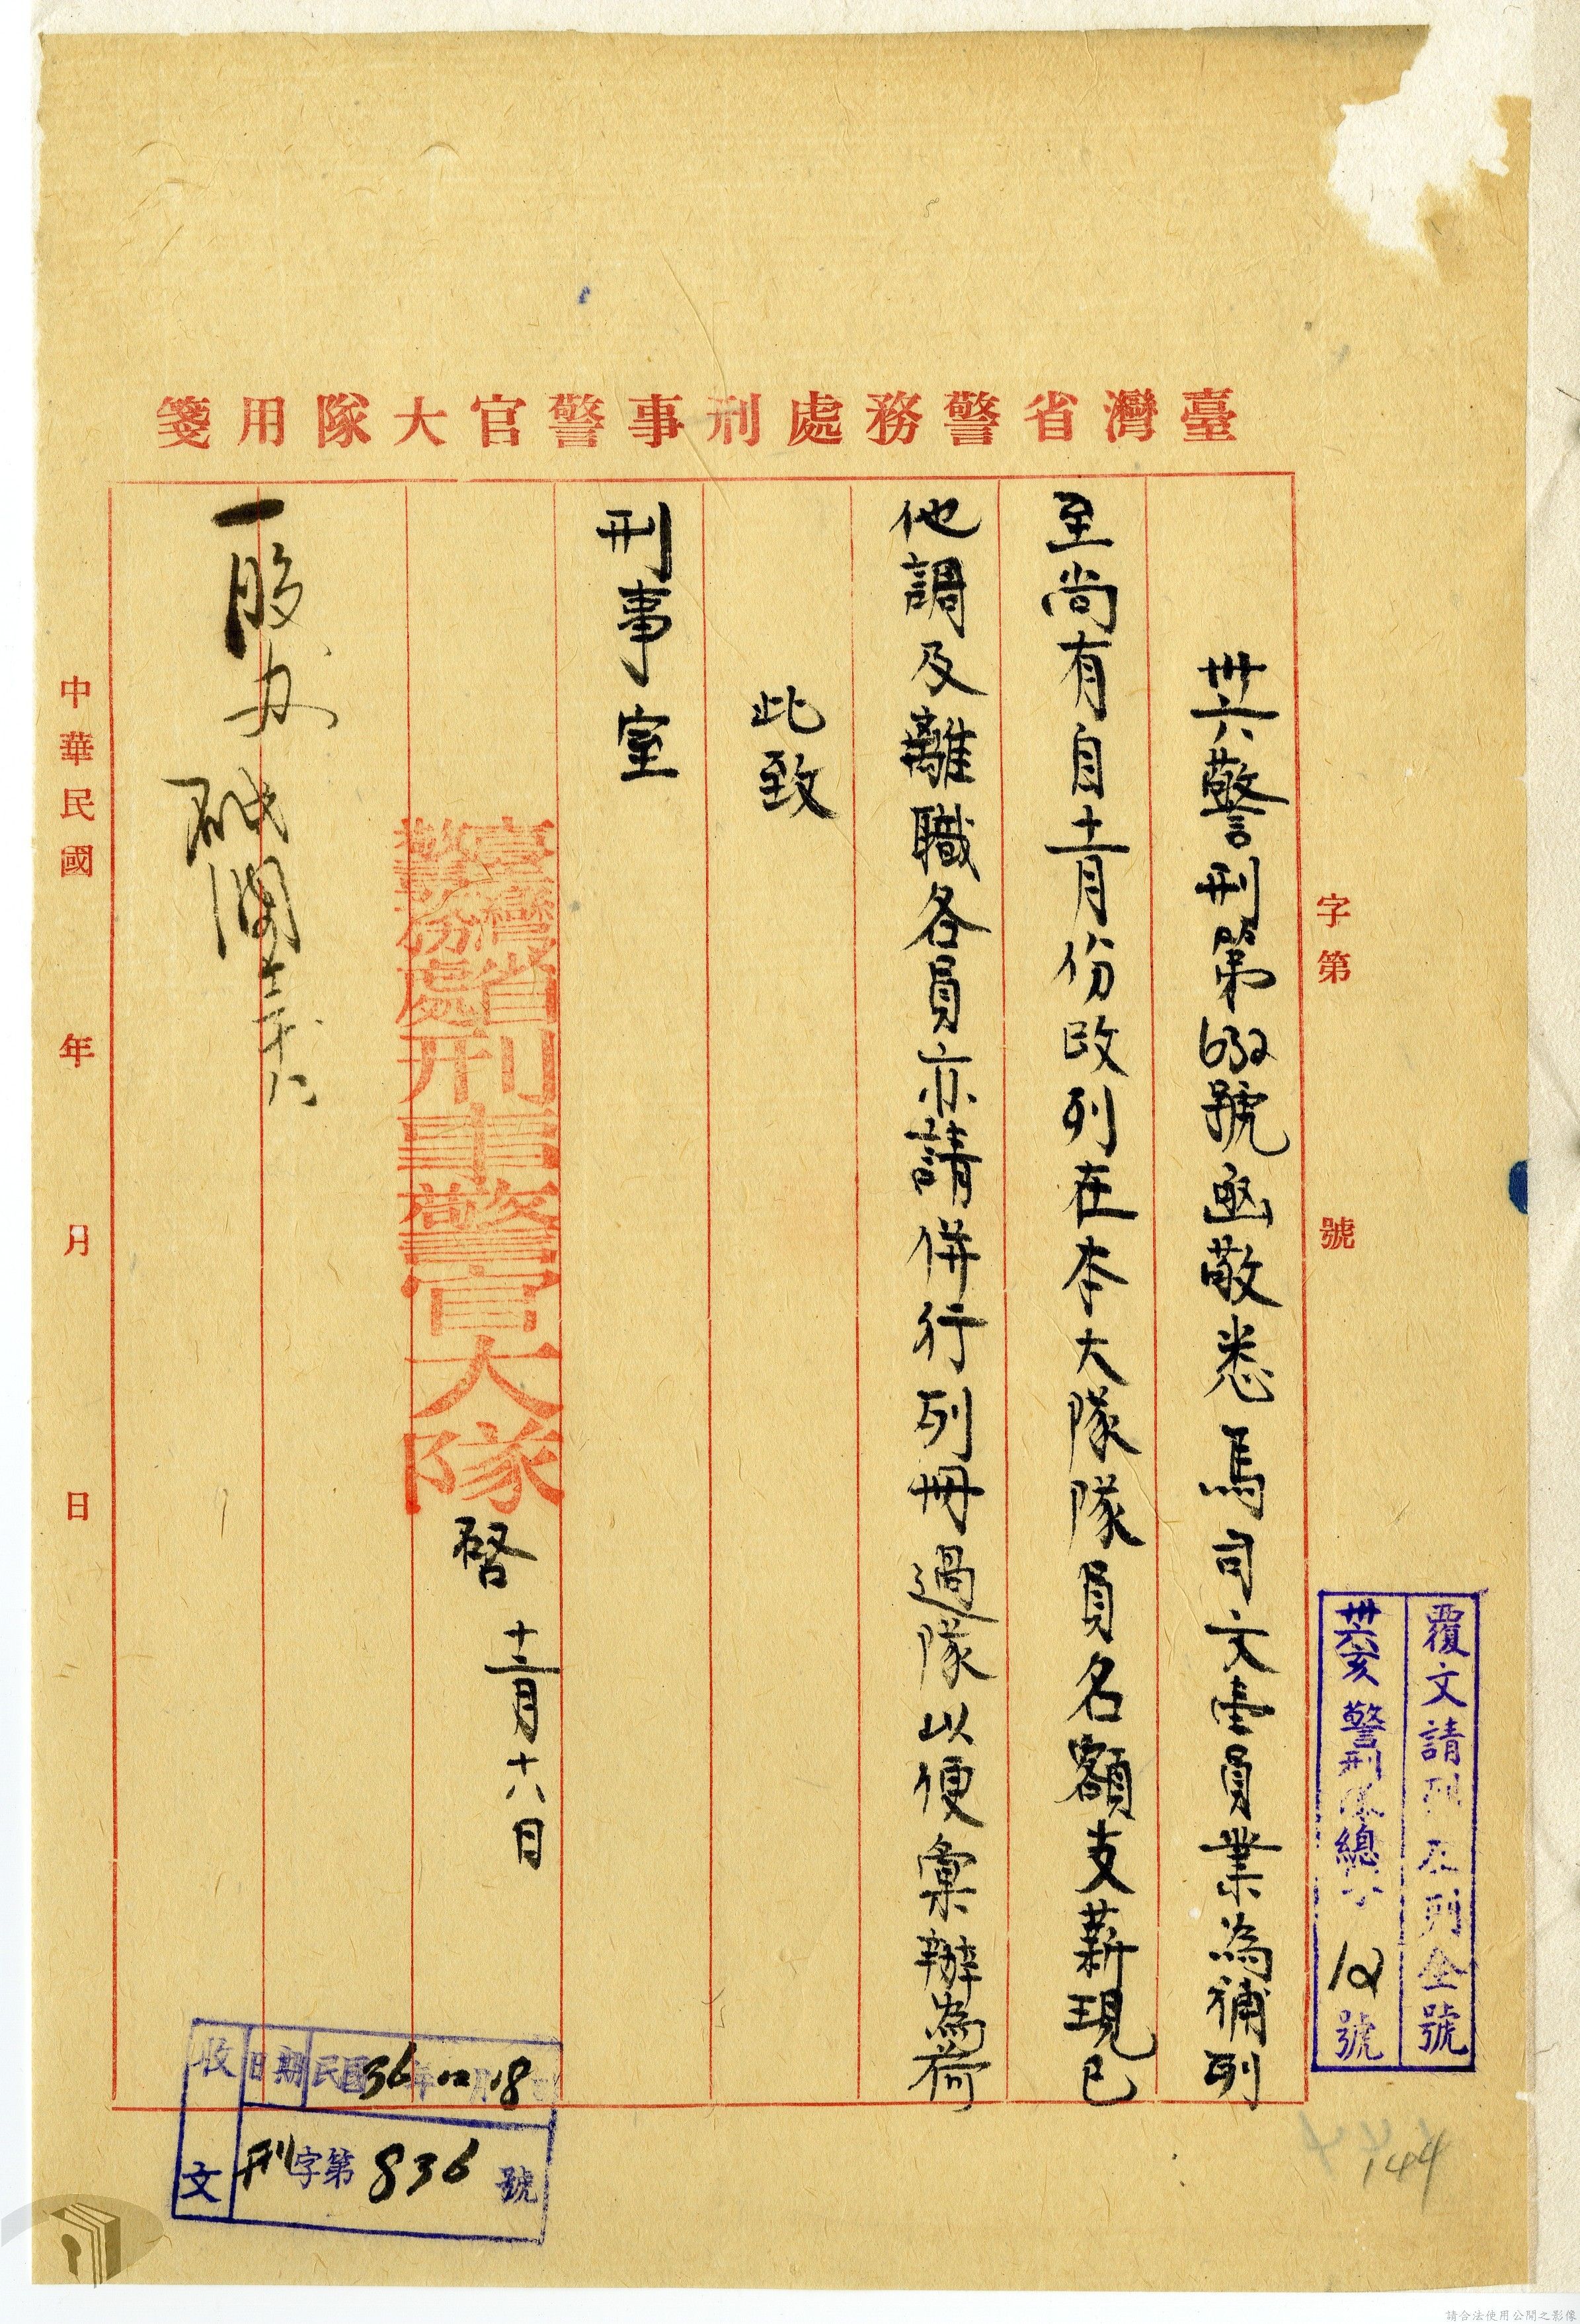 臺灣省警務處刑事警官大隊用箋
字第 號
覆文請列本列全號
卅六亥警刑隊總字12號
卅六警刑第632號函敬悉馬司文壹員業為補列
至尚有自十一月份改列在本大隊隊員名額支薪現已
他調及離職各員亦請併行列冊過隊以便彙辦為荷
此致
刑事室
臺灣省警務處刑事警官大隊
啓 十二月十六日
一股办
中華民國 年 月 日
收文
日期民國36年12月18日
刑字第836號
144
請合法使用公開之影像